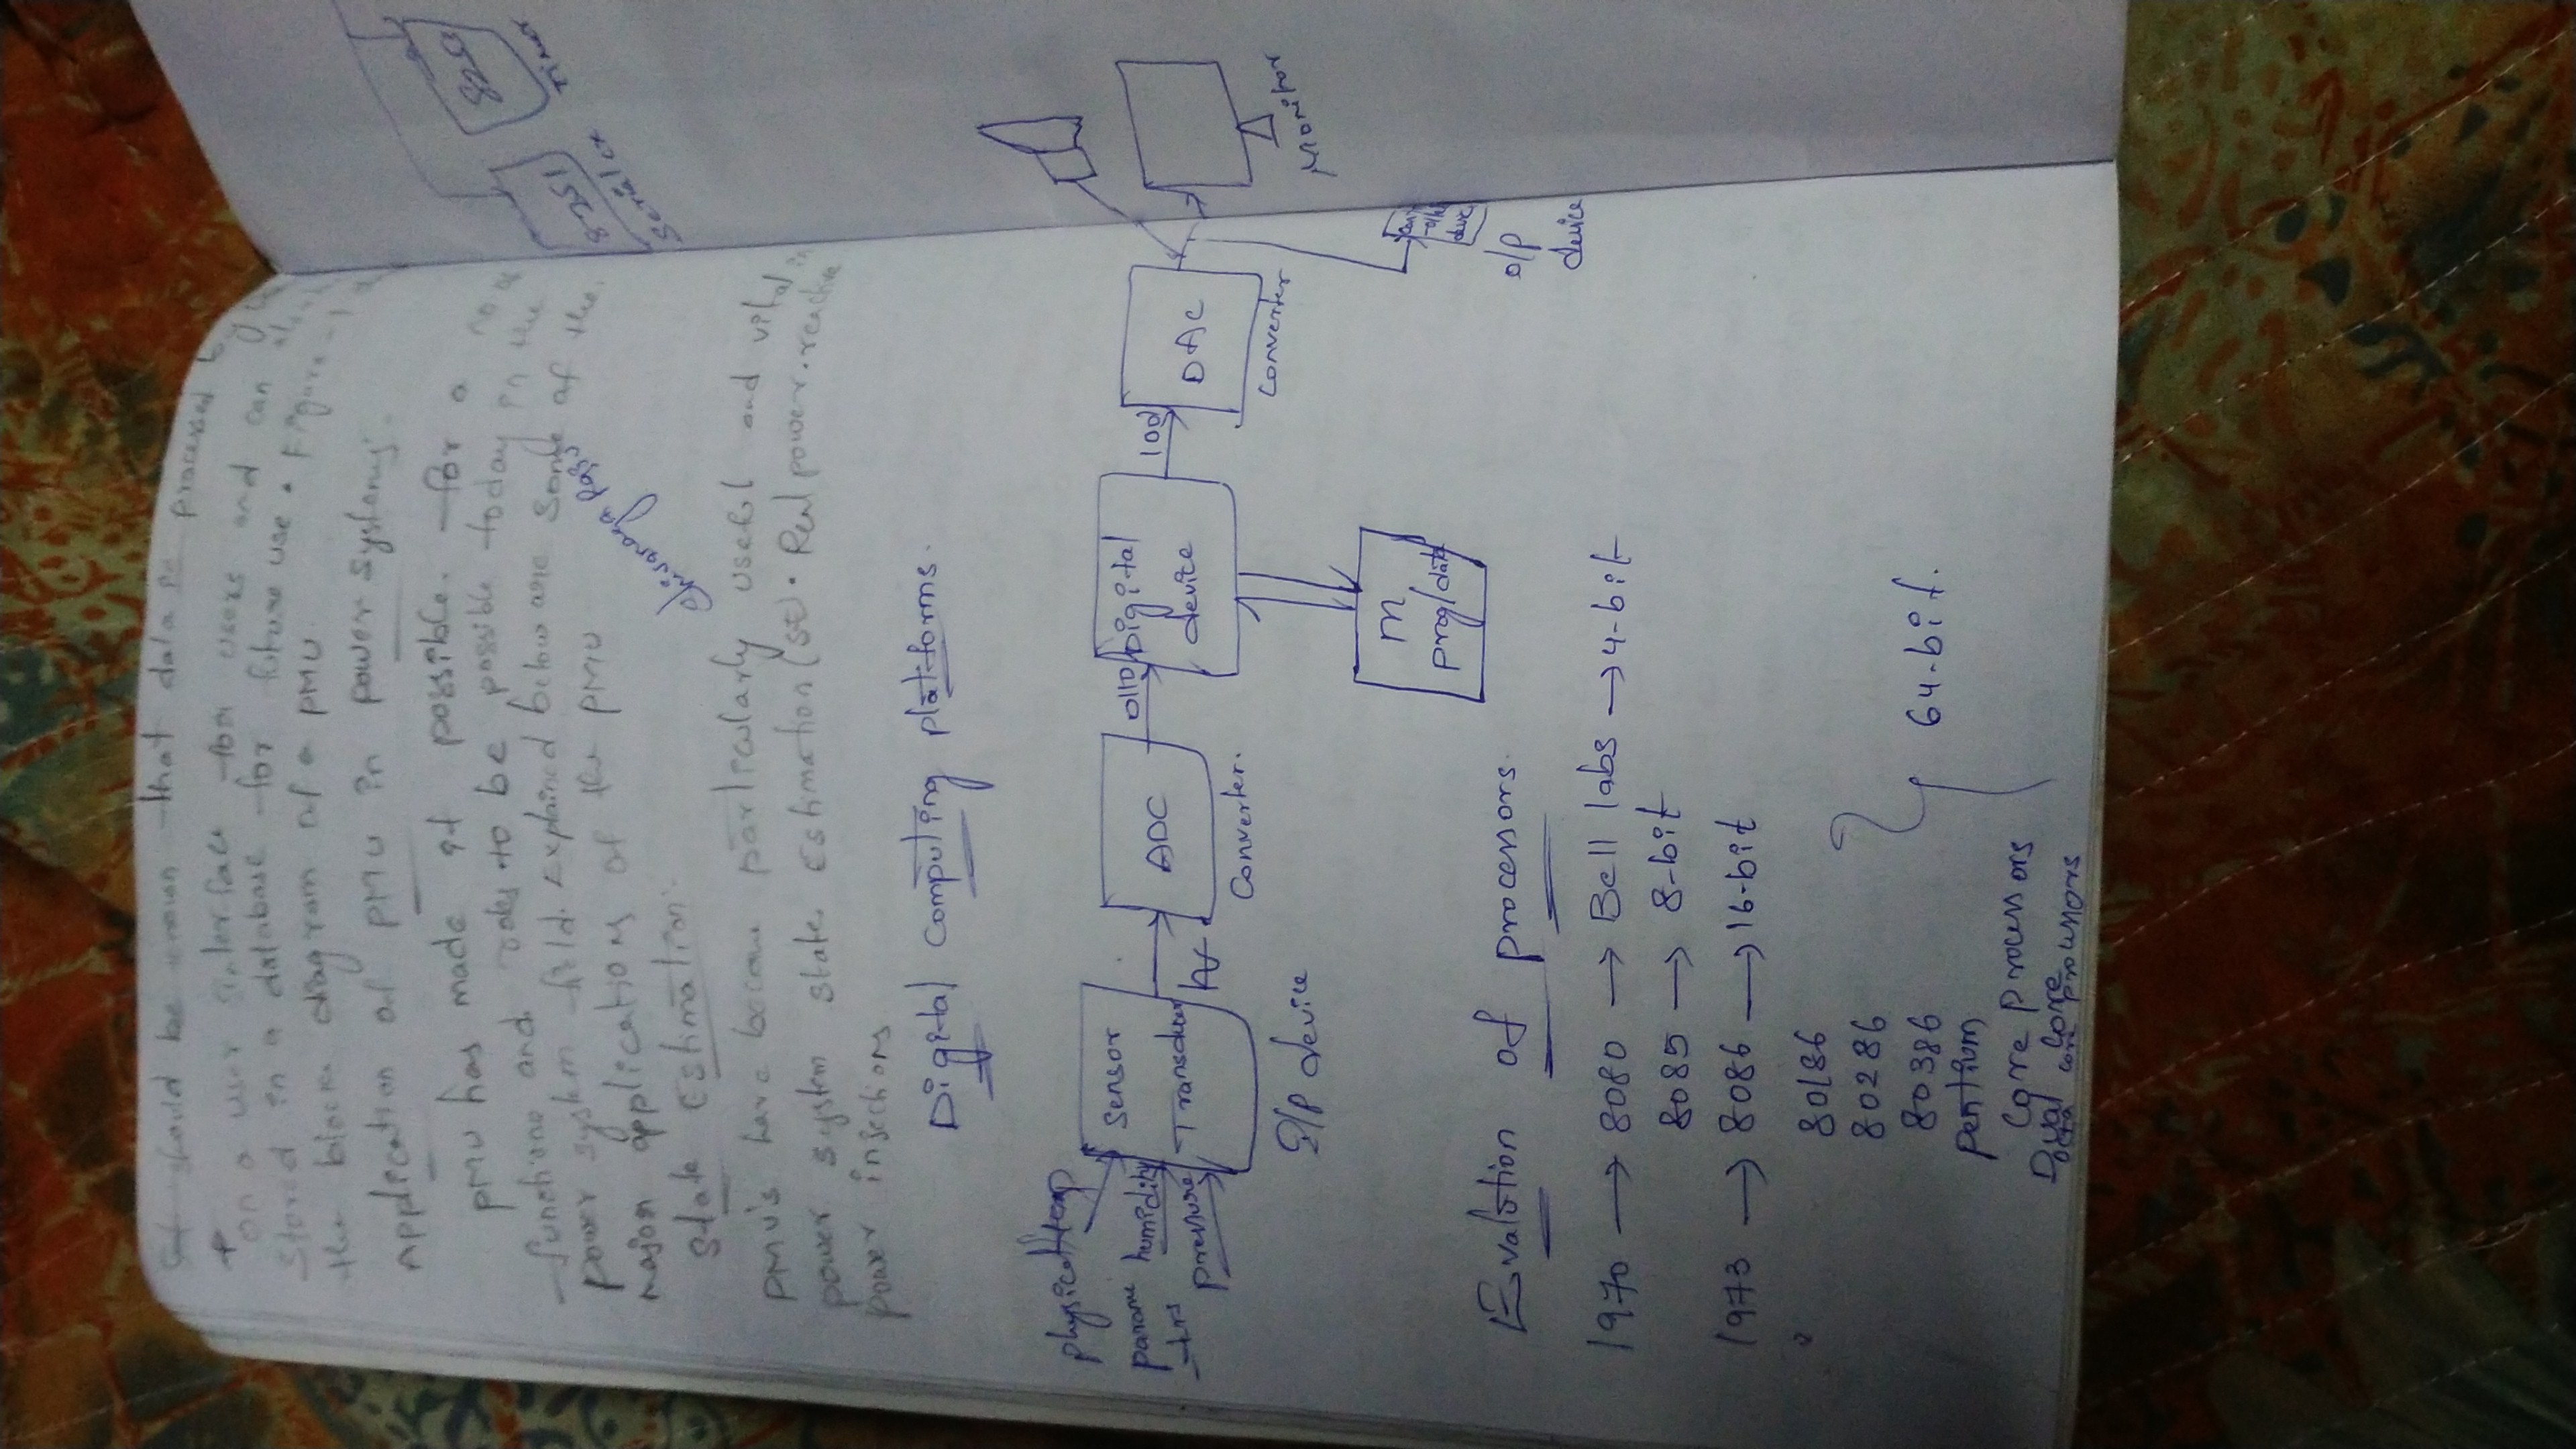 It should be known that data is processed by
on a user interface for users and can also
Stored in a database for future use. Figure-1
the block diagram of a PMU.
Application of PMU in power systems.
PMU has made it possible. for a no of
functions and roles to be possible today in the
power system field. Explained below are some of the
major applications of the PMU
Shivanaga Raju
State Estimation.
PMU's have become particularly useful and vital in
power system state Estimation (SE). Real power. reactive
power injections
Digital computing platforms.
physical temp
parame humidity
-trs pressure
Sensor
Transducer
I/P device
ADC
Converter.
0110
Digital
device
100
DAC
Converter
Monitor
m
prog/data
Cont
-oller
device
o/p
device
Evalution of processors.
1970 → 8080 → Bell labs → 4-bit
8085 → 8-bit
1973 → 8086 → 16-bit
80186
80286
80386
64-bit.
pentium
Core processors
Dual core
octa core processors
8251
Serial cx
825
Timer